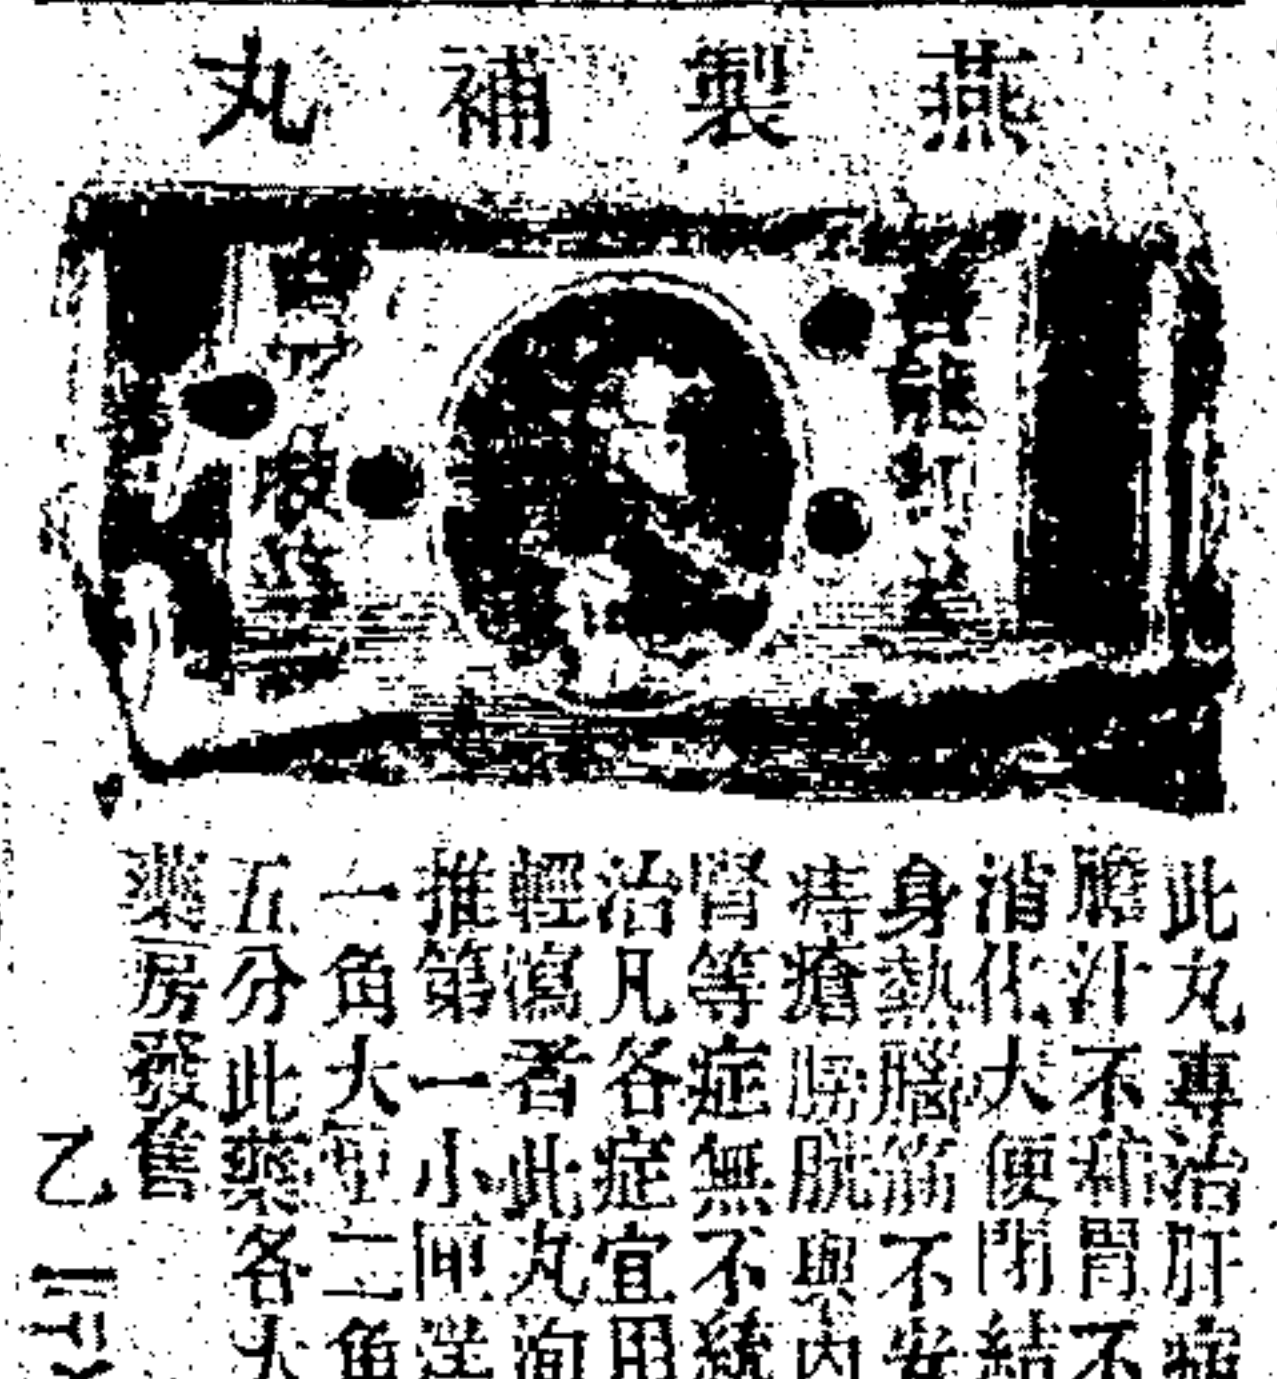 燕製補丸
此丸專治肝症
膽汁不和胃不
消化大便閉結
身熱腦筋不安
痔瘡膀胱與內
腎等症無不統
治凡各症宜用
輕瀉者此丸洵
推第一小匣洋
一角大匣二角
五分此藥各大
藥房發售
乙